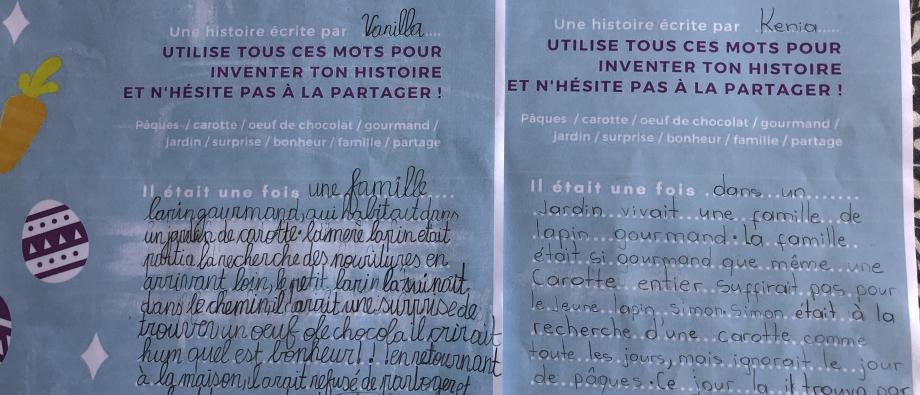 Une histoire écrite par Vanilla
UTILISE TOUS CES MOTS POUR
INVENTER TON HISTOIRE
ET N'HÉSITE PAS À LA PARTAGER !
Pâques / carotte / oeuf de chocolat / gourmand /
jardin / surprise / bonheur / famille / partage
Il était une fois une famille
lapin gourmand, qui habitait dans
un jardin de carotte. la mère lapin était
partit a la recherche des nourritures en
arrivant loin, le petit lapin la suivait
dans le chemin, il avait une surprise de
trouver un oeuf de chocola il crirait
hum quel est bonheur!. en retournant
à la maison, il avait refusé de partager et
Une histoire écrite par Kenia
UTILISE TOUS CES MOTS POUR
INVENTER TON HISTOIRE
ET N'HÉSITE PAS À LA PARTAGER !
Pâques / carotte / oeuf de chocolat / gourmand /
jardin / surprise / bonheur / famille / partage
Il était une fois dans un
Jardin vivait une famille de
lapin gourmand. la famille
était si gourmand que même une
Carotte entier suffirait pas pour
le Jeune lapin simon. Simon était à la
recherche d'une carotte comme
toute les jours, mais ignorait le jour
de pâques. Ce jour la il trouva par